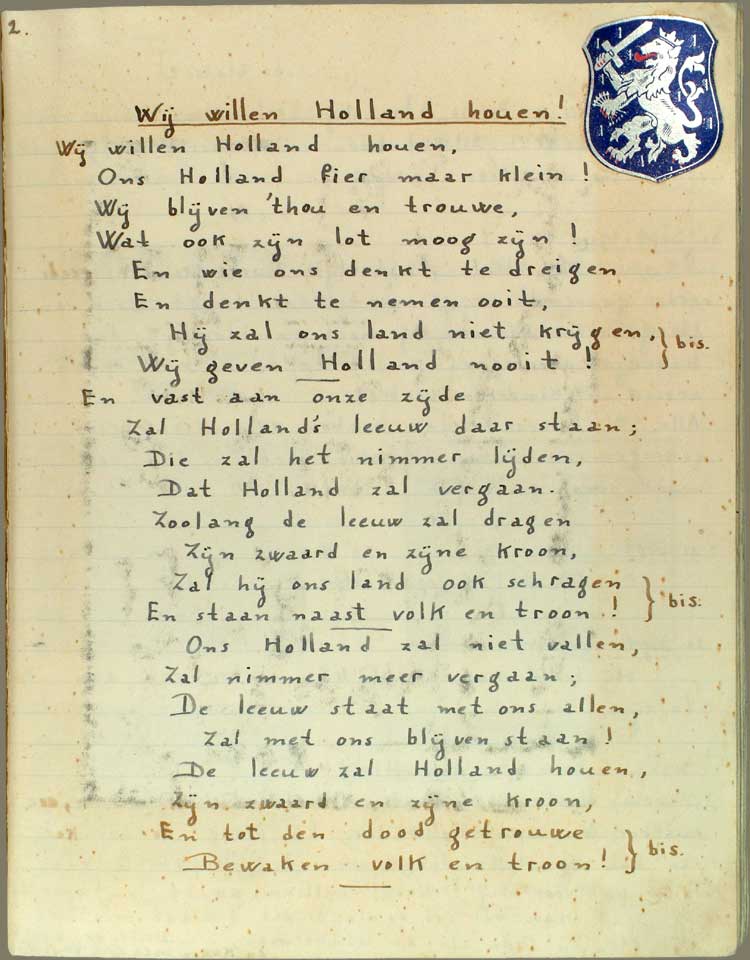 2.
Wij willen Holland houen!
Wij willen Holland houen,
Ons Holland fier maar klein!
Wij blijven 'thou en trouwe,
Wat ook zijn lot moog zijn!
En wie ons denkt te dreigen
En denkt te nemen ooit,
Hij zal ons land niet krijgen, } bis.
Wij geven Holland nooit!
En vast aan onze zijde
Zal Holland's leeuw daar staan;
Die zal het nimmer lijden,
Dat Holland zal vergaan.
Zoolang de leeuw zal dragen
Zijn zwaard en zijne kroon,
Zal hij ons land ook schragen } bis.
En staan naast volk en troon!
Ons Holland zal niet vallen,
Zal nimmer meer vergaan;
De leeuw staat met ons allen,
Zal met ons blijven staan!
De leeuw zal Holland houen,
Zijn zwaard en zijne kroon,
En tot den dood getrouwe } bis.
Bewaken volk en troon!